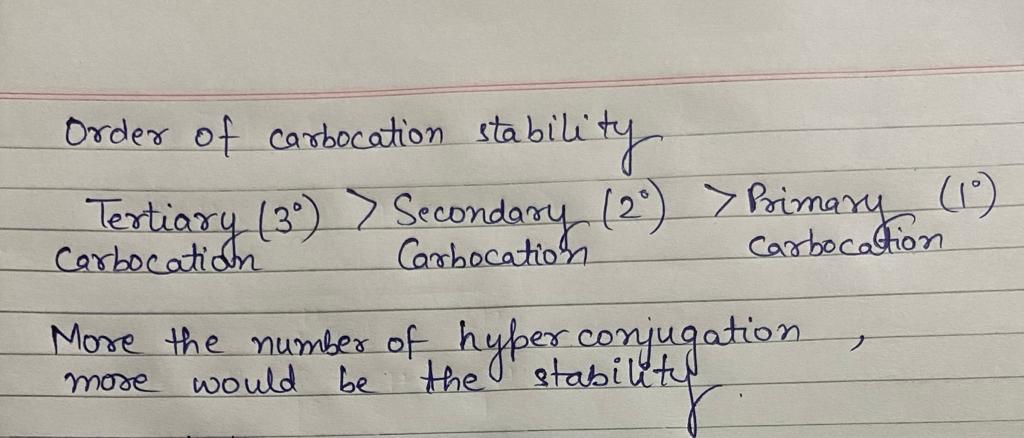 Order of carbocation stability
Tertiary (3°) > Secondary (2°) > Primary (1°)
Carbocation Carbocation Carbocation
More the number of hyperconjugation,
more would be the stability.